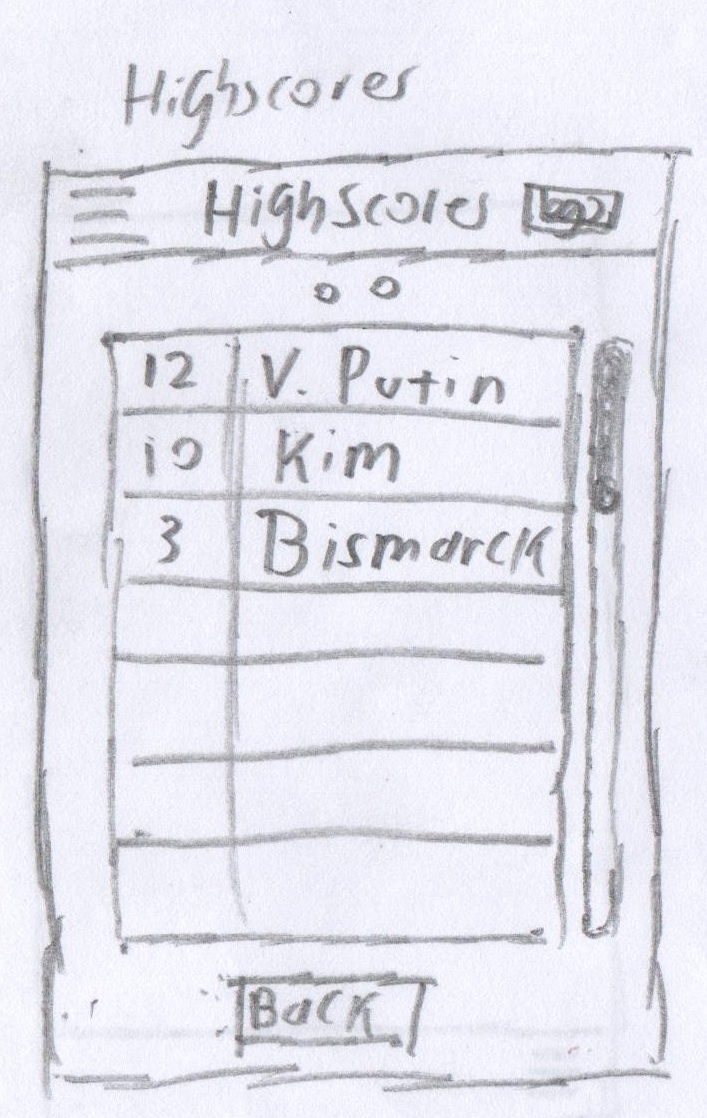 Highscores
HighScores logo
12 V. Putin
10 Kim
3 Bismarck
Back